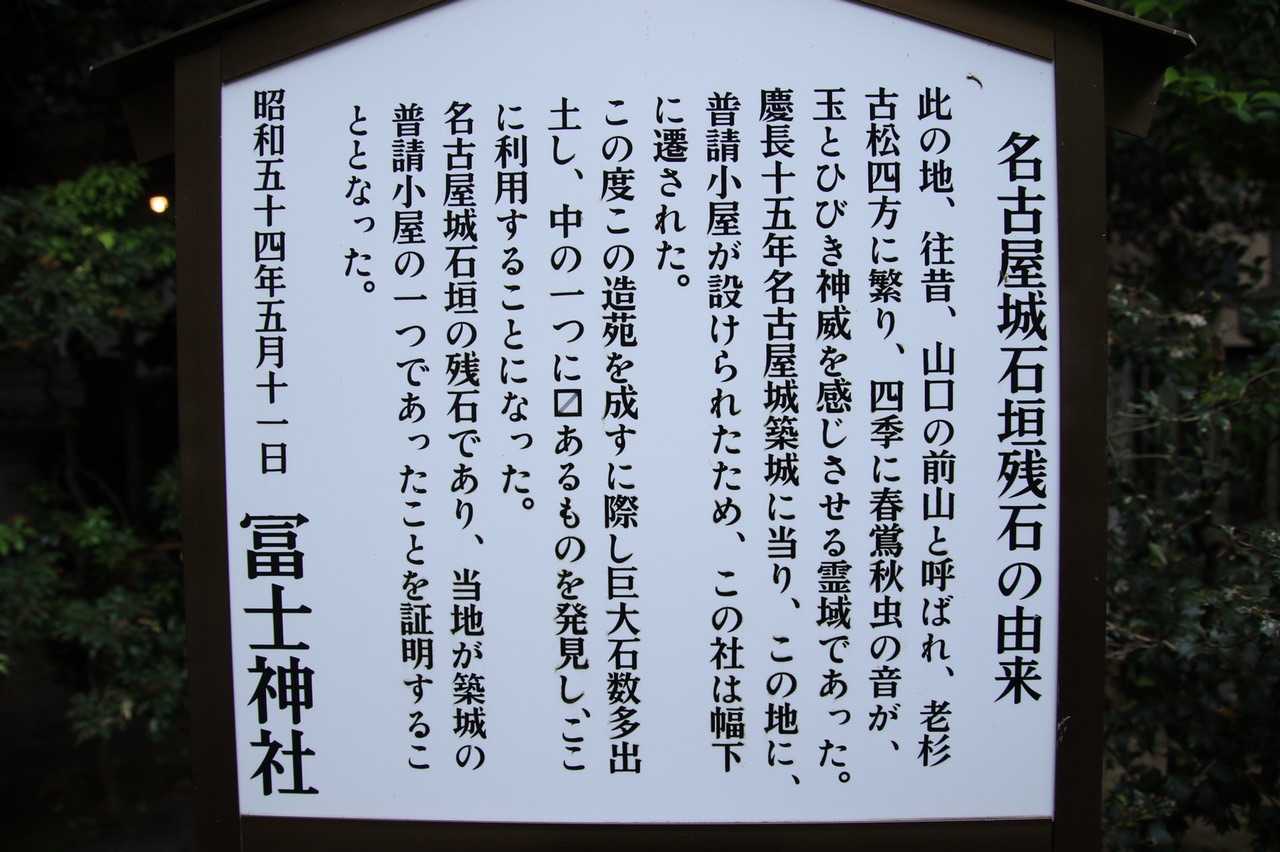 名古屋城石垣残石の由来
此の地、往昔、山口の前山と呼ばれ、老杉
古松四方に繁り、四季に春鶯秋虫の音が、
玉とひびき神威を感じさせる霊域であった。
慶長十五年名古屋城築城に当り、この地に、
普請小屋が設けられたため、この社は幅下
に遷された。
この度この造苑を成すに際し巨大石数多出
土し、中の一つに〼あるものを発見し、ここ
に利用することになった。
名古屋城石垣の残石であり、当地が築城の
普請小屋の一つであったことを証明するこ
ととなった。
昭和五十四年五月十一日 冨士神社